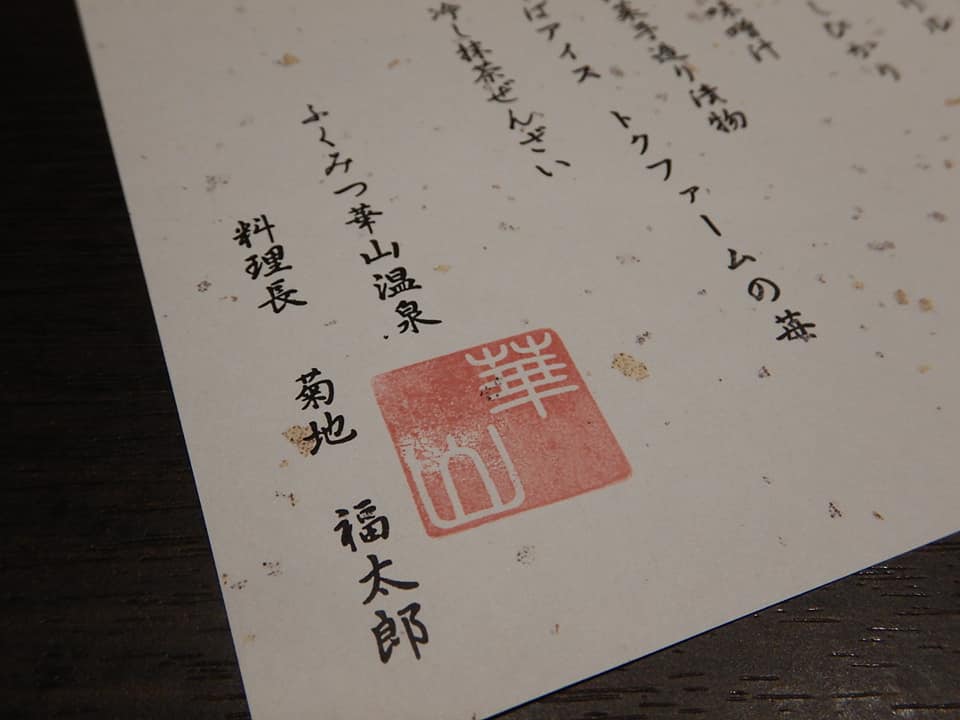 しひかり
味噌汁
手造り漬物
トクファームの苺
ばアイス
冷し抹茶ぜんざい
ふくみつ華山温泉
料理長 菊地 福太郎
華山